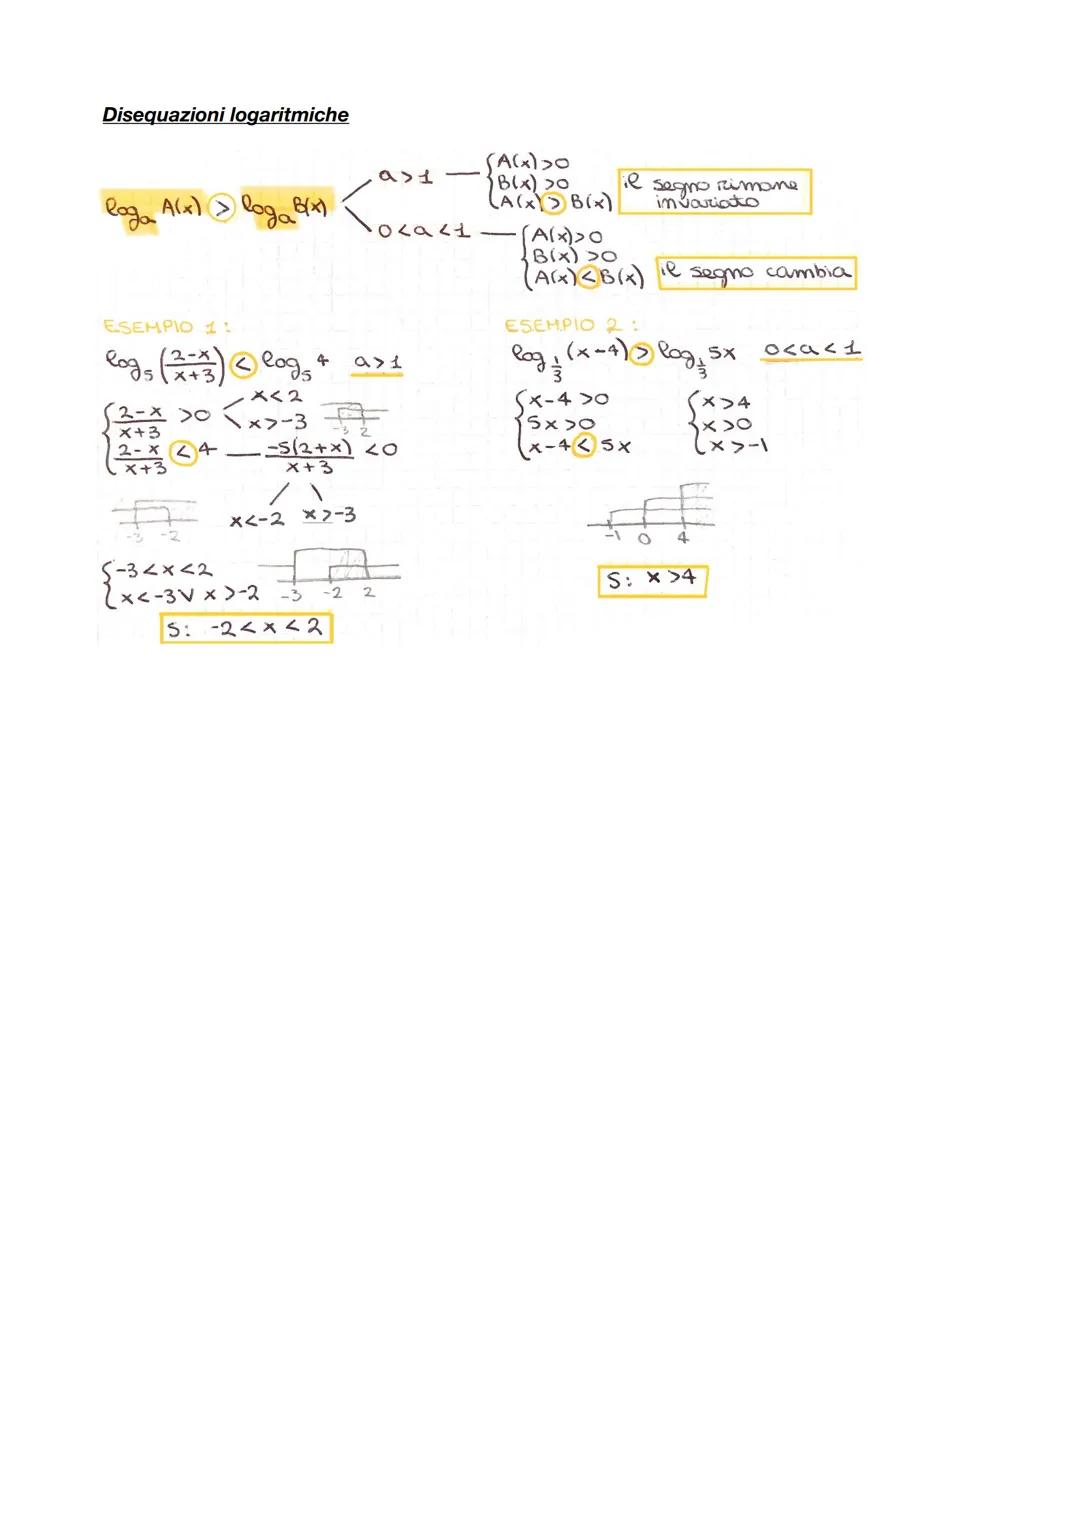 Disequazioni logaritmiche
logₐ A(x) > logₐ B(x)
a>1 — { A(x)>0
B(x)>0
A(x) > B(x)
il segno rimane
invariato
0<a<1 — { A(x)>0
B(x)>0
A(x) < B(x)
il segno cambia
ESEMPIO 1:
log₅ ((2-x)/(x+3)) < log₅ 4 a>1
{ (2-x)/(x+3) >0
x<2
x>-3
-3 2
(2-x)/(x+3) < 4 — -5(2+x)/(x+3) <0
x<-2 x>-3
-3 -2
{ -3<x<2
x<-3 V x>-2
-3 -2 2
S: -2<x<2
ESEMPIO 2:
log_(1/3) (x-4) > log_(1/3) 5x 0<a<1
{ x-4>0
5x>0
x-4 < 5x
{ x>4
x>0
x>-1
-1 0 4
S: x>4